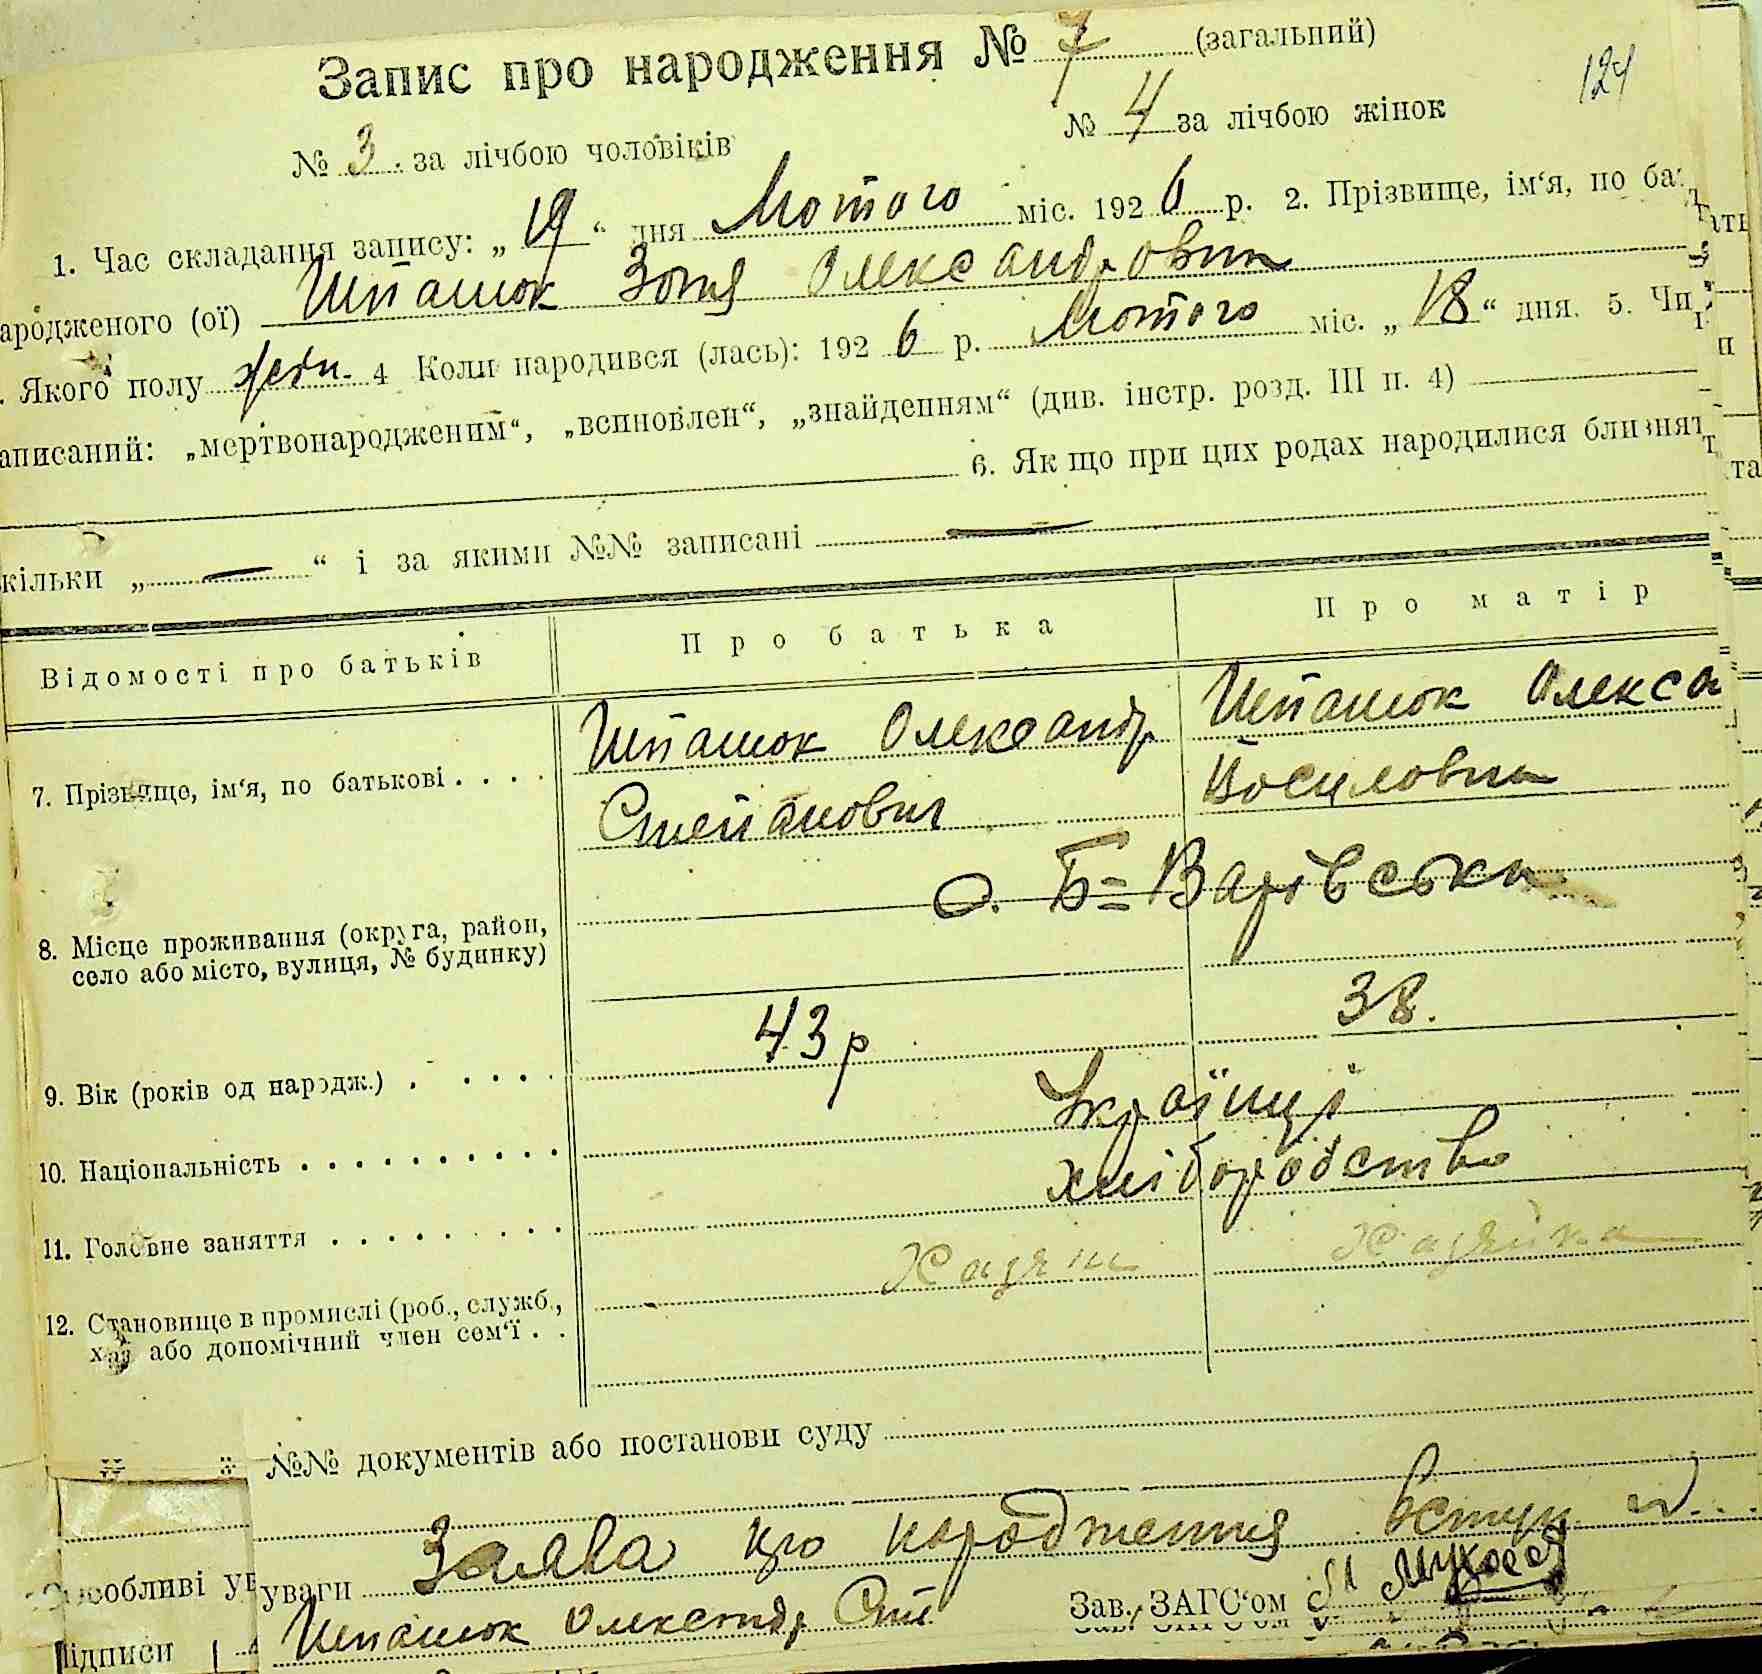 Запис про народження № 7 (загальний)
124
№ 3 за лічбою чоловіків № 4 за лічбою жінок
1. Час складання запису: „ 19 “ дня Лютого міс. 192 6 р. 2. Прізвище, ім‘я, по ба
ародженого (ої) Шпашок Зоня Олександровна
. Якого полу жен. 4 Коли народився (лась): 192 6 р. Лютого міс. „ 18 “ дня. 5. Чи
аписаний: „мертвонародженим“, „всиновлен“, „знайденням“ (див. інстр. розд. III п. 4)
6. Як що при цих родах народилися близнят
кільки „ — “ і за якими №№ записані —
Відомості про батьків Про батька Про матір
7. Прізвище, ім‘я, по батькові . . . . Шпашок Олександр Шпашок Олекса
Степанович Восиловна
8. Місце проживання (округа, район, с. Б=Варівська
село або місто, вулиця, № будинку)
9. Вік (років од народж.) . . . . . 43 р 38.
10. Національність . . . . . . . . . . Українці
11. Головне заняття . . . . . . . . хліборобство
12. Становище в промислі (роб., служб., Хазяін Хазяйка
хаз або допомічний член сем‘ї . .
№№ документів або постанови суду
собливі ув уваги Заява про народження
ідписи Шпашок Олександр Сте Зав. ЗАГС‘ом